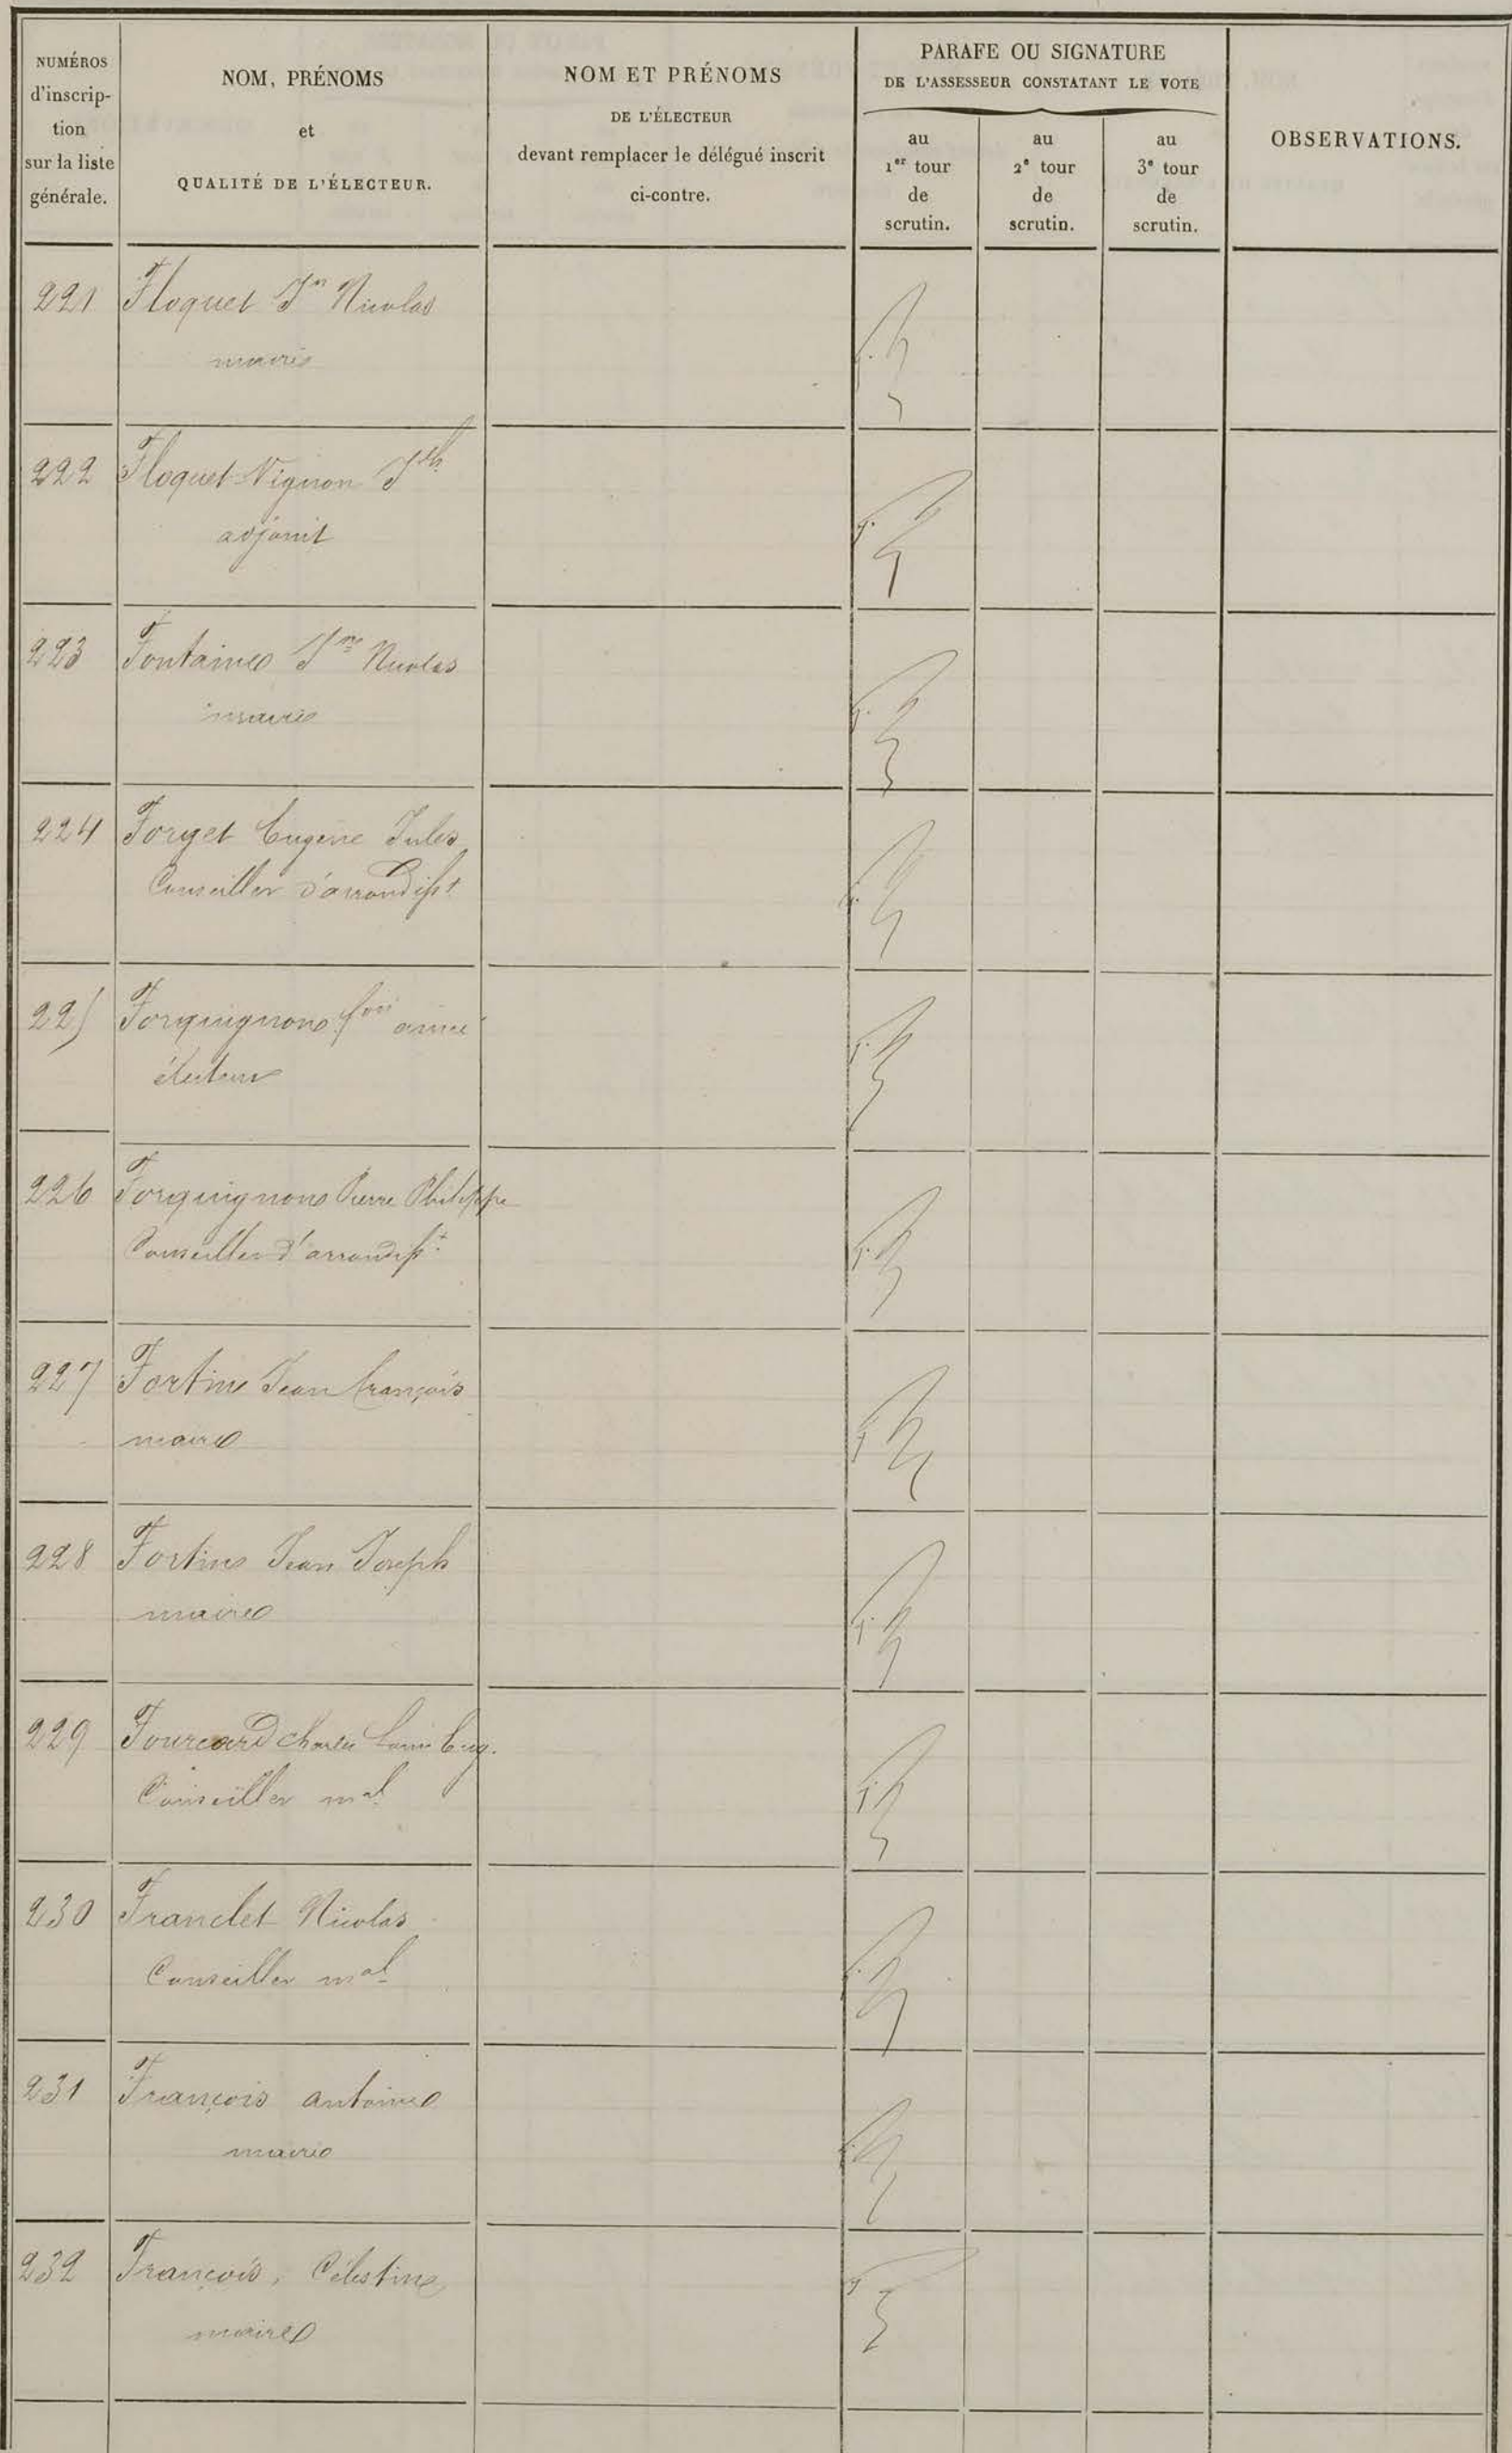 NUMÉROS
d'inscrip-
tion
sur la liste
générale.
NOM, PRÉNOMS
et
QUALITÉ DE L'ÉLECTEUR.
NOM ET PRÉNOMS
DE L'ÉLECTEUR
devant remplacer le délégué inscrit
ci-contre.
PARAFE OU SIGNATURE
DE L'ASSESSEUR CONSTATANT LE VOTE
au
1er tour
de
scrutin.
au
2e tour
de
scrutin.
au
3e tour
de
scrutin.
OBSERVATIONS.
221 Floquet Jn Nicolas
maire
222 Floquet-Vignon Jph
adjoint
223 Fontaine Nicolas
maire
224 Forget Eugène Jules
Conseiller d'arrondisst
225 Forquignon fois aimé
électeur
226 Forquignon Pierre Philippe
Conseiller d'arrondisst
227 Fortin Jean françois
maire
228 Fortin Jean Joseph
maire
229 Fourcard Charles Louis Eug.
Conseiller mal
230 Franclet Nicolas
Conseiller mal
231 François antoine
maire
232 François, Célestin
maire